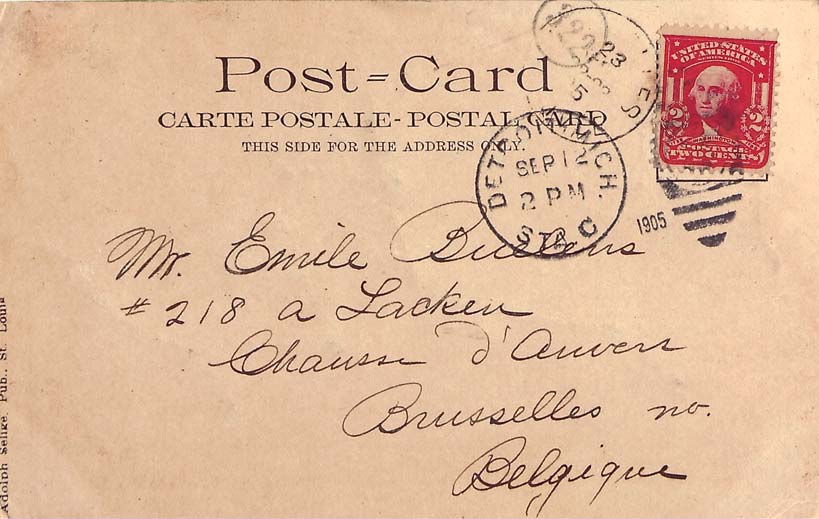 Post=Card
CARTE POSTALE-POSTAL CARD
THIS SIDE FOR THE ADDRESS ONLY.
UNITED STATES
OF AMERICA
2 2
WASHINGTON
POSTAGE
TWO CENTS
23
5
DETROIT, MICH.
SEP 12
2 PM
STA. C
1905
Mr. Emile
#218 a Lacken
Chausse d'Anvers
Brusselles no.
Belgique
Adolph Selige, Pub., St. Louis